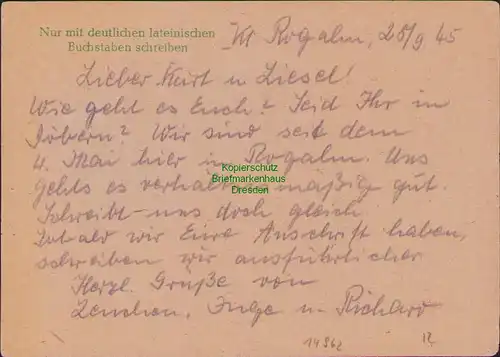 Nur mit deutlichen lateinischen
Buchstaben schreiben
Rogahn, 28/9 45
Lieber Kurt u Liesel!
Wie geht es Euch? Seid Ihr in
Wir sind seit dem
4. Mai hier in Rogahn. Uns
gehts es verhältnismäßig gut.
Schreibt uns doch gleich
Sobald wir Eure Anschrift haben,
schreiben wir ausführlicher
Herzl. Grüße von
Lenchen, Inge u. Richard
14962
Kopierschutz
Briefmarkenhaus
Dresden